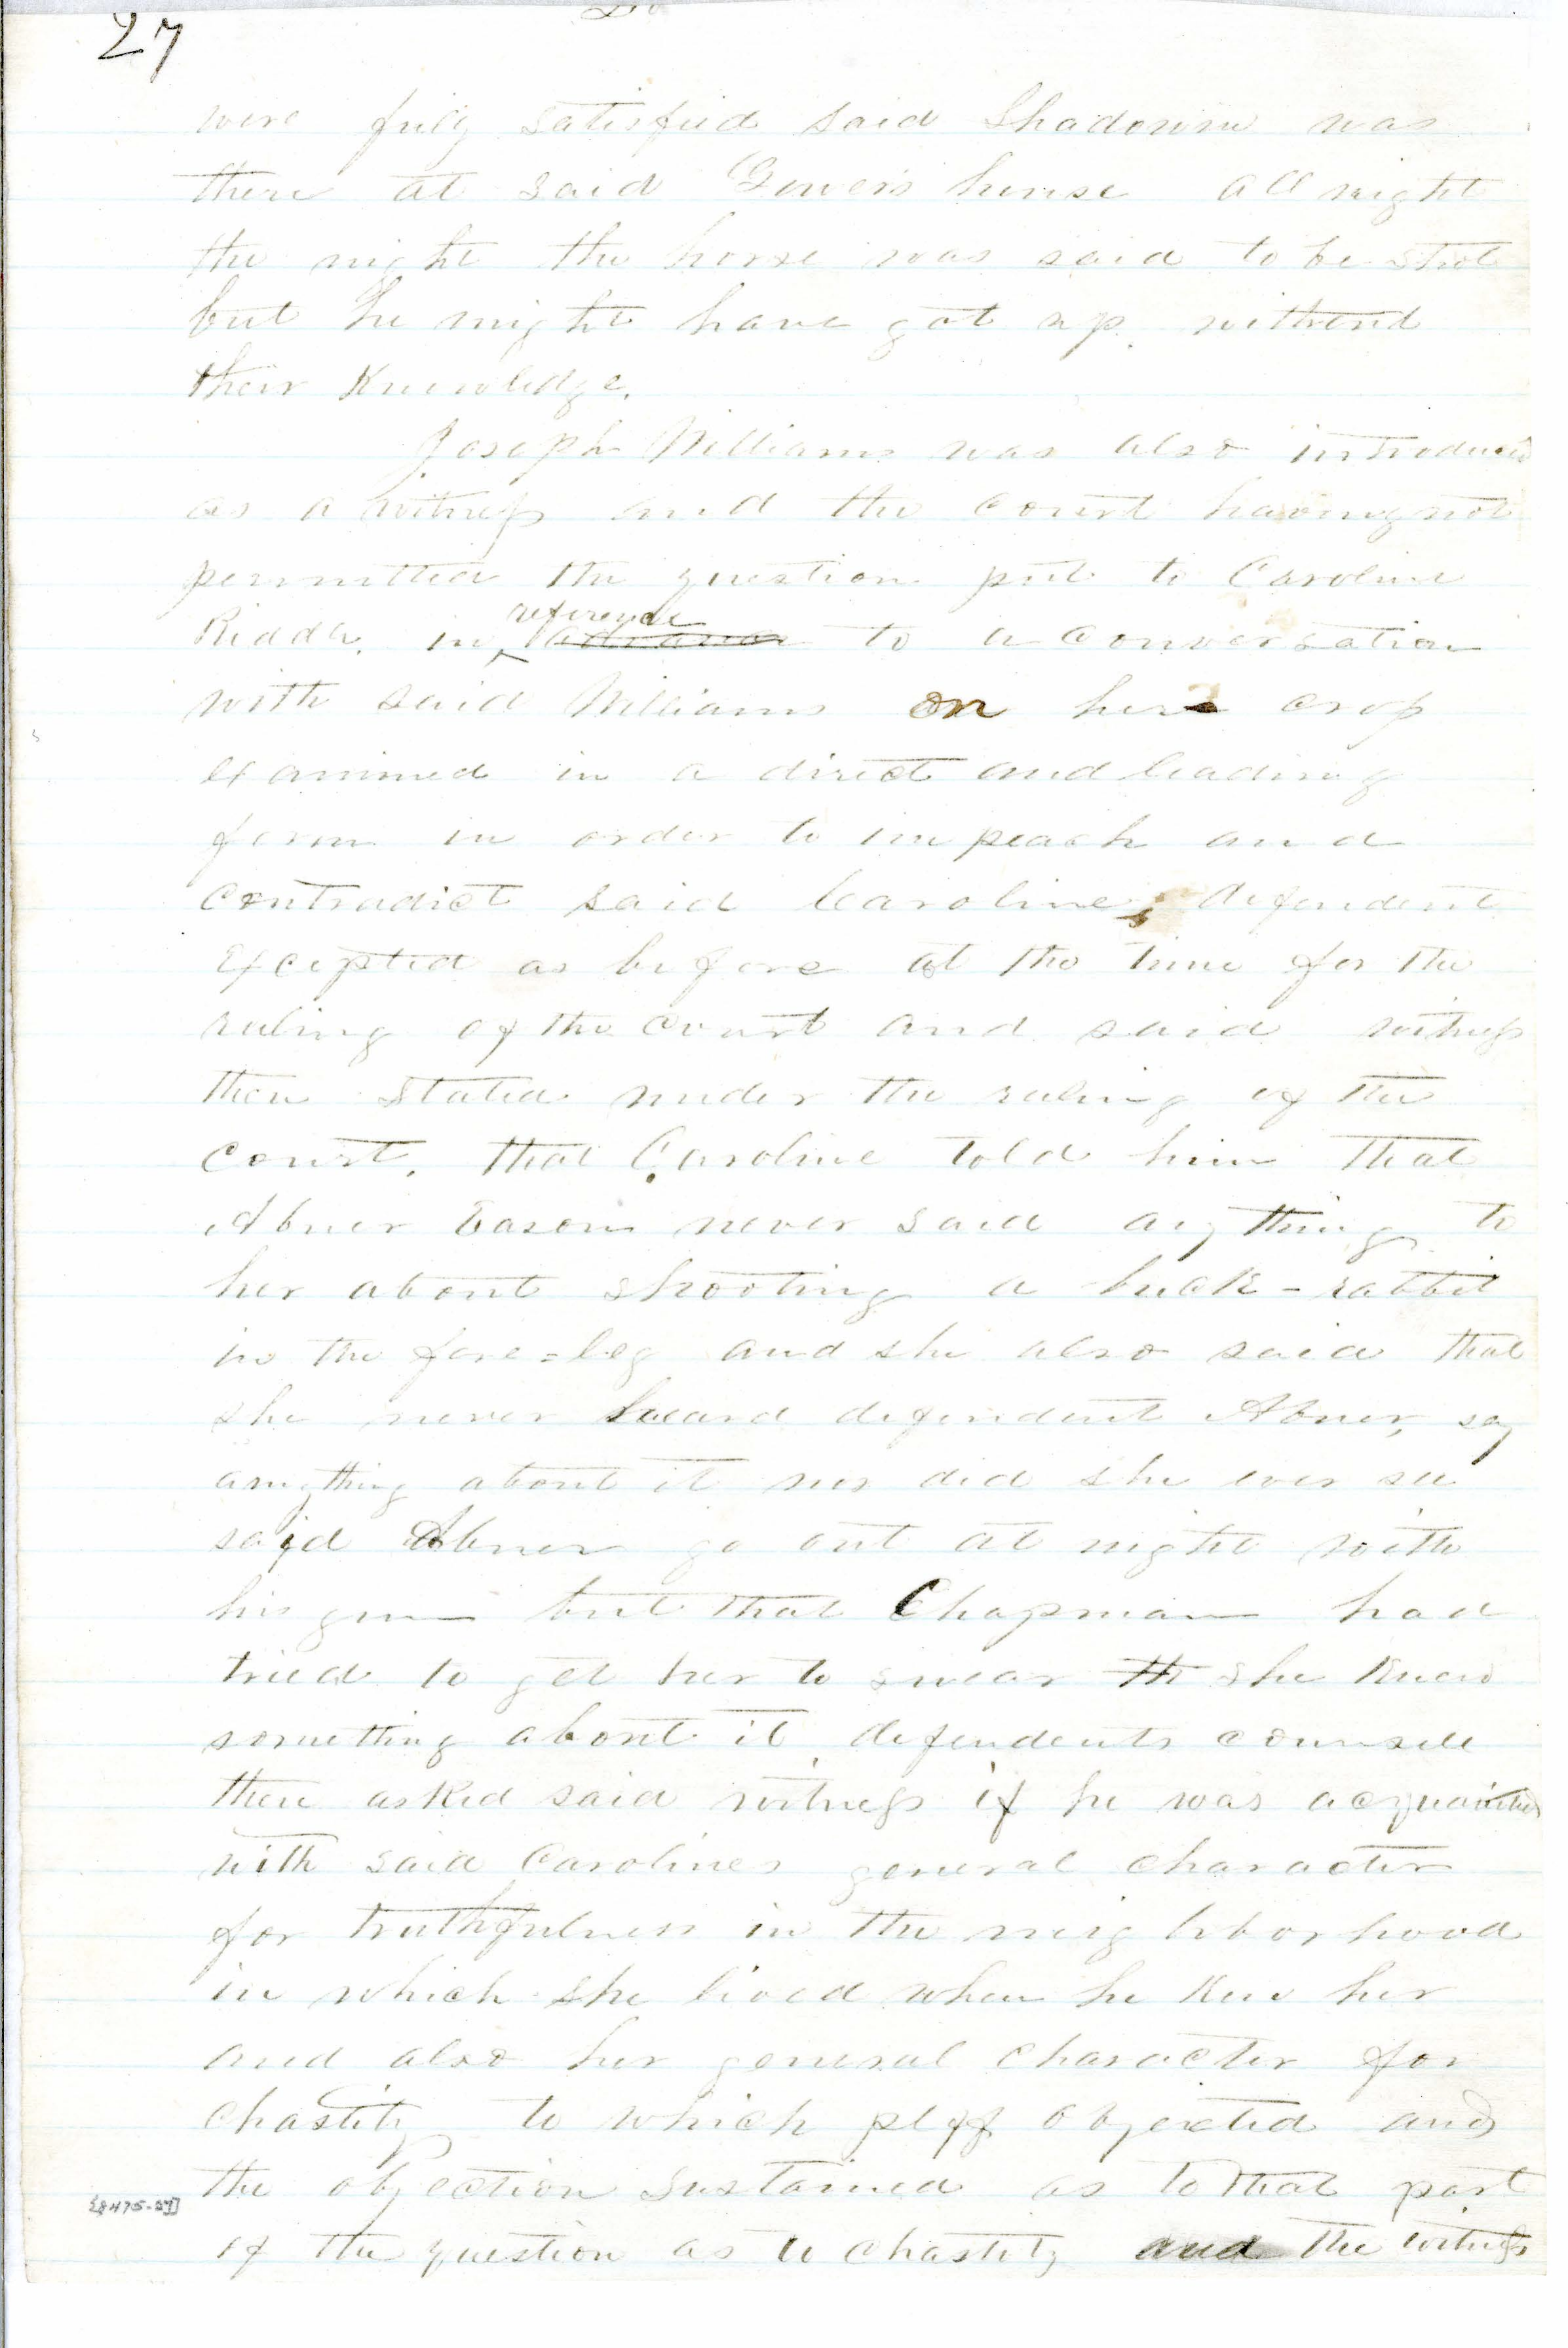 27
were fuly satisfied said Shadowin was
there at said Gowers house all night
the night the horse was said to be shot
but he might have got up without
their Knowledge.
Joseph Williams was also introduced
as a witness and the court having not
permitted the question put to Caroline
Riddle, in reference to a conversation
with said Williams on her crop
examined in a direct and leading
form in order to impeach and
contradict said Caroline, defendent
excepted as before at the time for the
ruling of the court and said witness
then stated under the ruling of the
court, that Caroline told him that
Abner Eason never said anything to
her about shooting a buck-rabbit
in the fore=leg and she also said that
she never heard defendent Abner, say
anything about it nor did she ever see
said Abner go out at night with
his gun but that Chapman had
tried to get her to swear th she Knew
something about it, defendents counsell
then asked said witness if he was acquainted
with said Carolines general character
for truthfulness in the neighborhood
in which she lived when he Knew her
and also her general character for
chastity to which plff objected and
the objection sustained as to that part
of the question as to chastity and the witness
[8475-27]